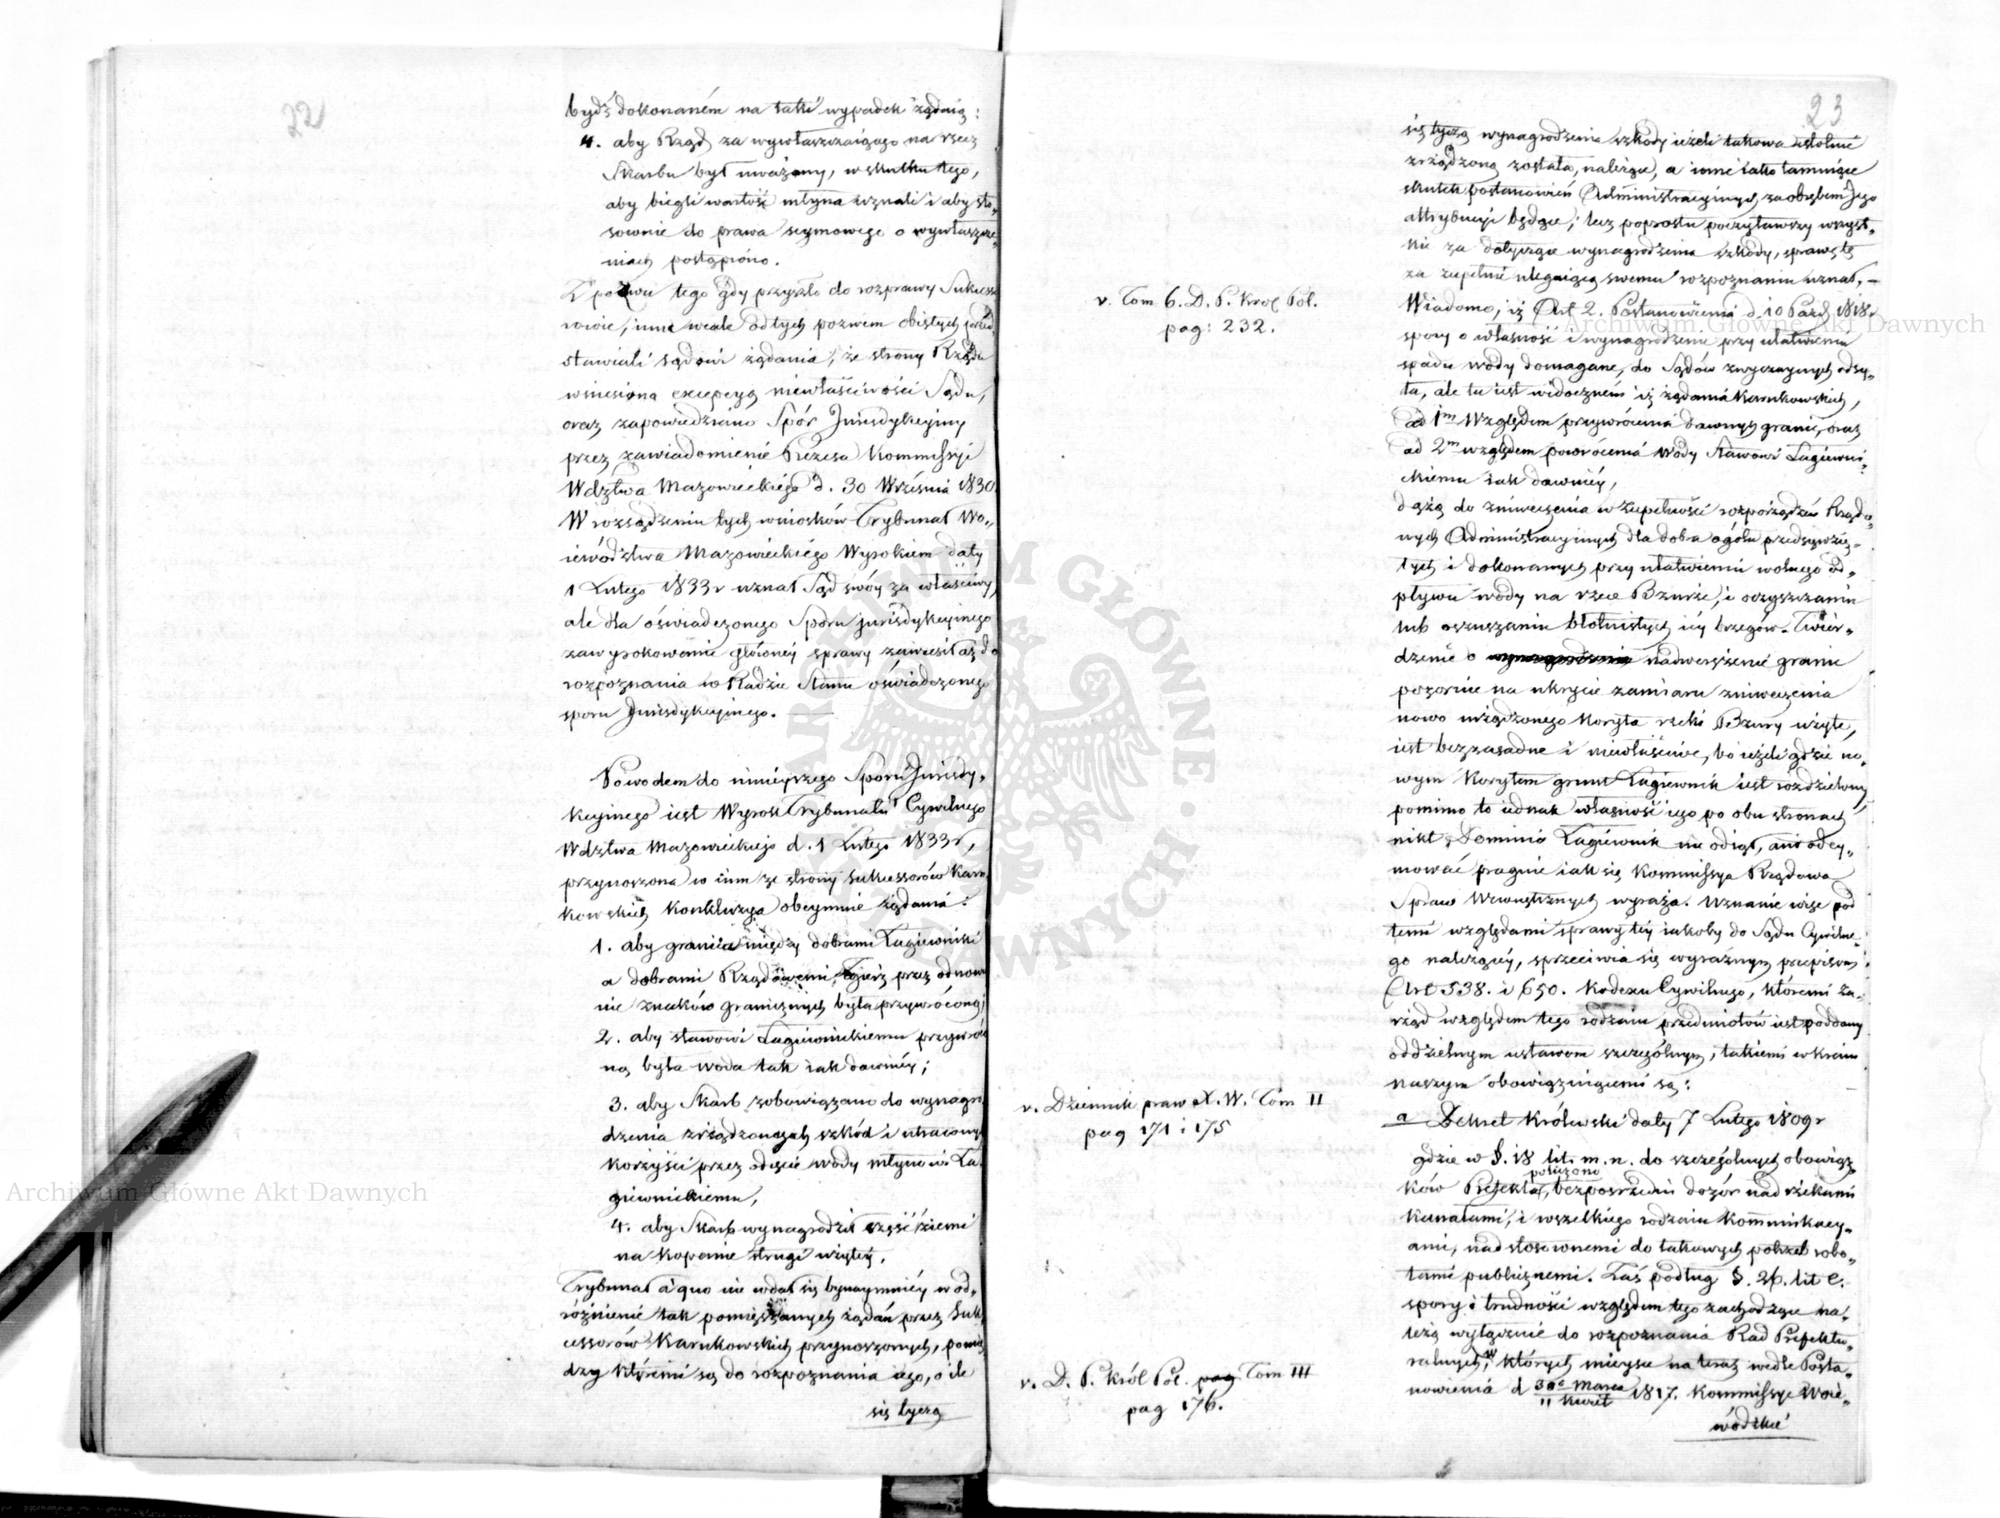 22
bydź dokonaném na taki wypadek żądaią:
4. aby Rząd za wywłaszczaiącego na rzecz
Skarbu był uważany, w skutku tego,
aby biegli wartość młyna uznali i aby sto-
sownie do prawa seymowego o wywłaszcze-
niach postąpiono.
Z pozwu tego gdy przyszło do rozprawy Sukcess
rowie, inne wcale od tych pozwem obiętych przed
stawiali sądowi żądania, ze strony Rządu
wniesioną excepcyą niewłaściwości Sądu,
oraz zapowiedziano Spór Jurisdykcyiny
przez zawiadomienie Prezesa Kommissyi
Wdztwa Mazowieckiego d. 30 Września 1830.
W rozsądzeniu tych wniosków Trybunał Wo-
iewództwa Mazowieckiego Wyrokiem daty
1 Lutego 1833 r uznał Sąd swóy za właściwy,
ale dla oświadczonego Sporu jurisdykcyinego
zawyrokowanie główney sprawy zawiesił aż do
rozpoznania w Radzie Stanu oświadczonego
sporu Jurisdykcyinego. —
Powodem do ninieyszego Sporu Jurisdy-
kcyinego iest Wyrok Trybunału Cywilnego
Wdztwa Mazowieckiego d. 1 Lutego 1833 r,
przynoszona w nim ze strony Sukcessorów Karn
kowskich Konkluzya obeymuie żądania:
1. aby granica między dobrami Łagiewniki
a dobrami Rządowemi Zgierz przez odnowie
nie znaków granicznych była przywróconą;
2. aby stawowi Łagiewnickiemu przywróco
ną była woda tak iak dawniéy;
3. aby Skarb zobowiązano do wynagro
dzenia zrządzonych szkód i utraconych
korzyści przez odięcie wody młynowi Ła
giewnickiemu,
4. aby Skarb wynagrodził część ziemi
na kopanie strugi użytéy,
Trybunał a quo nie wdał się bynaymniéy w od-
różnienie tak pomięszanych żądań przez Suk
cessorów Karnkowskich przynoszonych, pomię
dzy któremi są do rozpoznania iego, o ile
się tyczą
23
się tyczą wynagrodzenia szkody ieżeli takowa istotnie
zrządzoną została, należące, a inne iako tamuiące
skutek postanowień Administracyinych, za obrębem Jego
attrybucyi będące; lecz poprostu poczytawszy wszyst-
kie za dotyczące wynagrodzenia szkody, sprawę tę
za zupełnie ulegaiącą swemu rozpoznaniu uznał, —
v. Tom 6. D. P. Król Pol.
pag: 232.
Wiadomo, iż Art 2. Postanowienia d. 10 Paźd 1818.
spory o własność i wynagrodzenie przy ułatwieniu
spadu wody domagane, do Sądów zwyczaynych odsy-
ła, ale tu iest widoczném iż żądania Karnkowskich,
ad 1m Względem przywrócenia dawnych granic, oraz
ad 2m względem powrócenia wody Stawowi Łagiewni-
ckiemu iak dawniéy,
dążą do zniweczenia w zupełności rozporządzeń Rządo-
wych Administracyinych dla dobra ogółu przedsięwzię-
tych i dokonanych przy ułatwieniu wolnego od-
pływu wody na rzece Bzurze, i oczyszczaniu
lub osuszaniu błotnistych iéy brzegów. Twier-
dzenie o nadweręzenie granic
pozornie na ukrycie zamiaru zniweczenia
nowo urządzonego koryta rzeki Bzury użyte,
iest bezzasadne i niewłaściwe, bo ieżeli gdzie no-
wym Korytem grunt Łagiewnik iest rozdzielony,
pomimo to iednak własność iego po obu stronach
nikt Dominio Łagiewnik nie odiął, ani odey-
mować pragnie iak się Kommissya Rządowa
Spraw Wewnętrznych wyraża. Uznanie więc pod
temi względami sprawy téy iakoby do Sądu Cywilne-
go należącéy, sprzeciwia się wyraźnym przepisom
Art 538. i 650. Kodexu Cywilnego, któremi za-
rząd względem tego rodzaiu przedmiotów iest poddany
oddzielnym ustawom szczególnym, takiemi w kraiu
naszym obowiązuiącemi są:
v. Dziennik praw X. W. Tom II
pag 171 i 175
a Dekret Królewski daty 7 Lutego 1809 r
gdzie w §. 18 lit. m. n. do szczególnych obowiąz
ków Prefekta położono, bezpośredni dozór nad rzekami
kanałami, i wszelkiego rodzaiu kommunikacy-
ami, nad stosownemi do takowych potrzeb robo-
tami publicznemi. Zaś podług §. 26. lit e.
spory i trudności względem tego zachodzące na-
leżą wyłącznie do rozpoznania Rad Prefektu-
ralnych, w których mieysce na teraz wedle Posta-
v. D. P. Król Pol. Tom III
pag 176.
nowienia d 30o Marca / 11 Kwiet 1817. Kommissye Woie-
wódzkie
Archiwum Główne Akt Dawnych
Archiwum Główne Akt Dawnych
ARCHIWUM GŁÓWNE AKT DAWNYCH